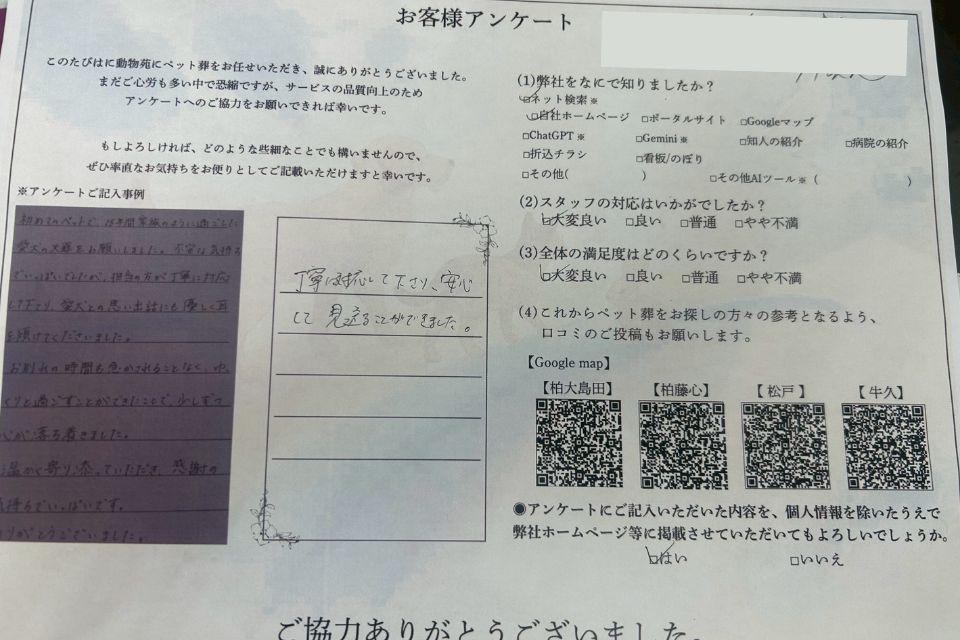 お客様アンケート
このたびはに動物苑にペット葬をお任せいただき、誠にありがとうございました。
まだご心労も多い中で恐縮ですが、サービスの品質向上のため
アンケートへのご協力をお願いできれば幸いです。
もしよろしければ、どのような些細なことでも構いませんので、
ぜひ率直なお気持ちをお便りとしてご記載いただけますと幸いです。
※アンケートご記入事例
初めてのペットで、15年間家族のように過ごした
愛犬の火葬をお願いしました。不安な気持ち
でいっぱいでしたが、担当の方が丁寧に対応
して下さり、愛犬との思い出話にも優しく耳
を傾けてくださいました。
お別れの時間も急かされることなく、ゆ
くりと過ごすことができたことで、少しずつ
心が落ち着きました。
温かく寄り添っていただき、感謝の
気持ちでいっぱいです。
ありがとうございました。
丁寧に対応して下さり、安心
して見送ることができました。
(1)弊社をなにで知りましたか?
□ネット検索※
□自社ホームページ □ポータルサイト □Googleマップ
□ChatGPT※ □Gemini※ □知人の紹介 □病院の紹介
□折込チラシ □看板/のぼり
□その他( ) □その他AIツール※( )
(2)スタッフの対応はいかがでしたか?
□大変良い □良い □普通 □やや不満
(3)全体の満足度はどのくらいですか?
□大変良い □良い □普通 □やや不満
(4)これからペット葬をお探しの方々の参考となるよう、
口コミのご投稿もお願いします。
【Google map】
【柏大島田】 【柏藤心】 【松戸】 【牛久】
◉アンケートにご記入いただいた内容を、個人情報を除いたうえで
弊社ホームページ等に掲載させていただいてもよろしいでしょうか。
□はい □いいえ
ご協力ありがとうございました。